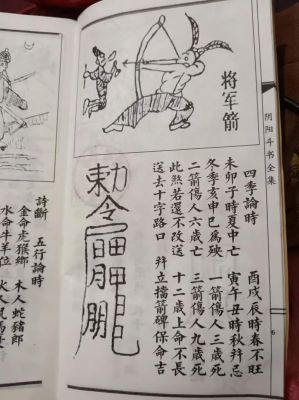 将军箭
阴阳斗书全集
6
四季論時　酉戌辰時春不旺
未卯子時夏中亡　寅午丑時秋忌
冬季亥申巳為殃　一箭傷人三歲死
二箭傷人六歲亡　三箭傷人九歲死
此煞若還不改送　十二歲上命不長
送去十字路口　立擋箭碑保命吉
勅令
詩斷　五行論時
金命虎猴鄉　木人蛇豬郎
水命牛羊位　火人鼠馬